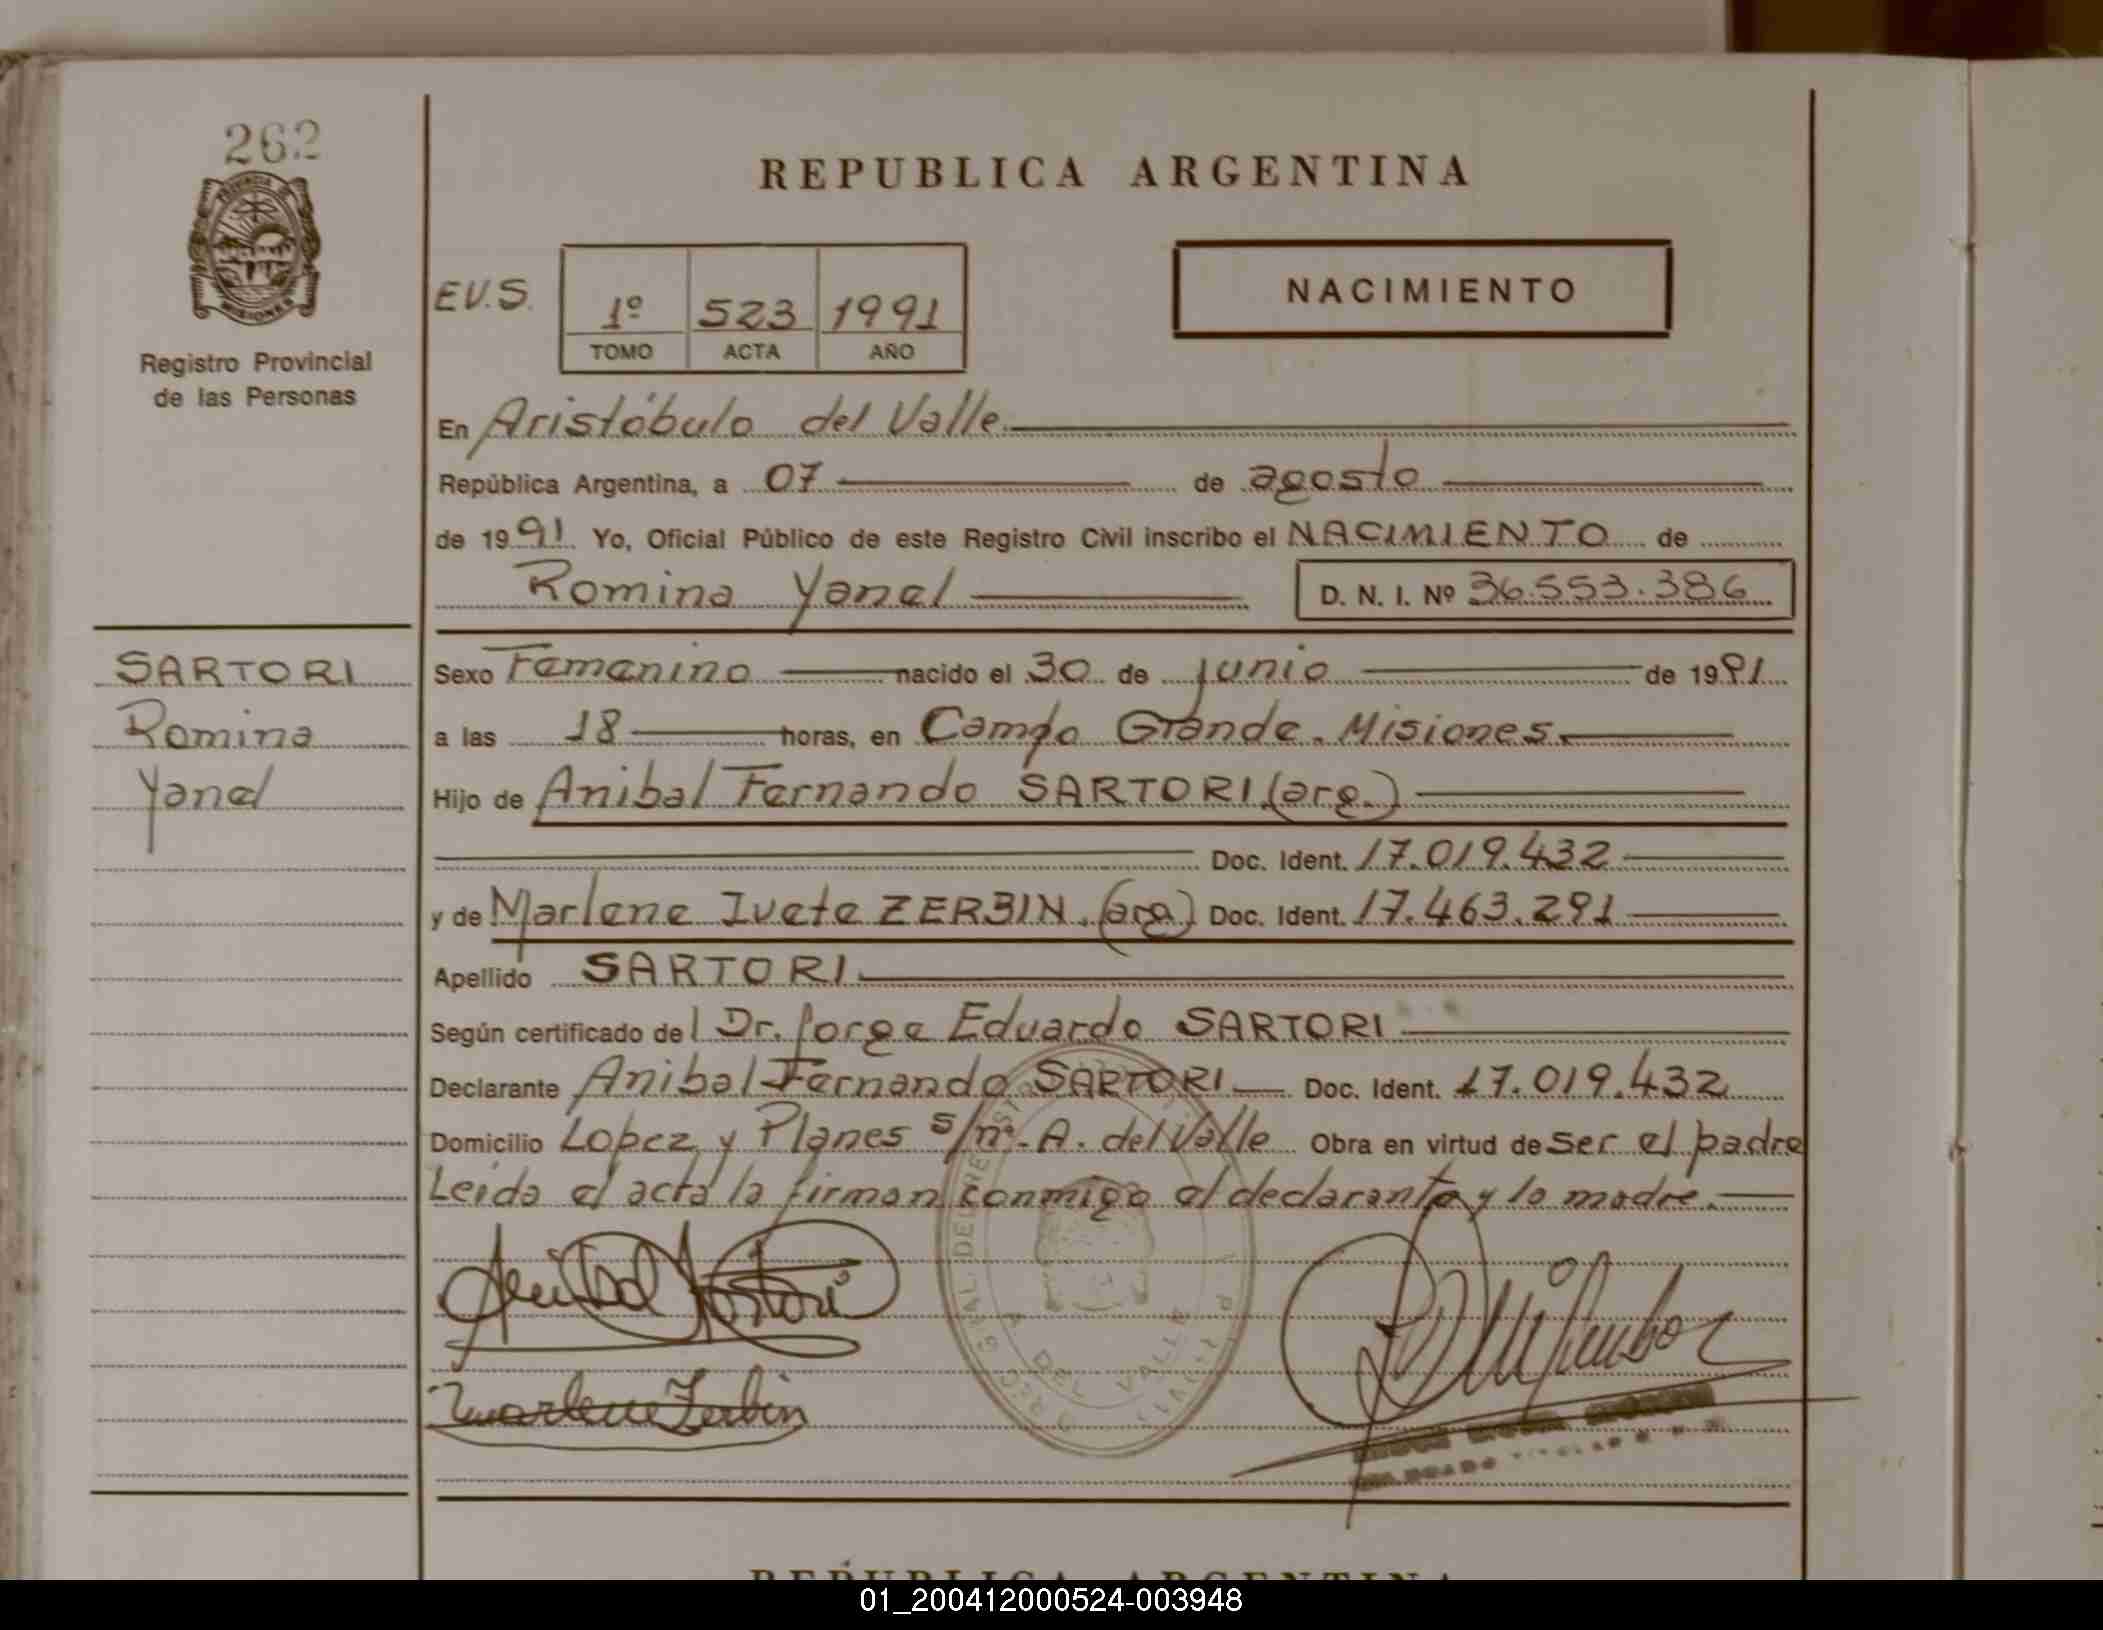 262
PROVINCIA DE
MISIONES
Registro Provincial
de las Personas
SARTORI
Romina
Yanel
REPUBLICA ARGENTINA
EV.S.
1º 523 1991
TOMO ACTA AÑO
NACIMIENTO
En Aristóbulo del Valle
República Argentina, a 07 de agosto
de 1991 Yo, Oficial Público de este Registro Civil inscribo el NACIMIENTO de
Romina Yanel D. N. I. Nº 36.553.386
Sexo Femenino nacido el 30 de junio de 1991
a las 18 horas, en Campo Grande. Misiones.
Hijo de Anibal Fernando SARTORI (arg.)
Doc. Ident. 17.019.432
y de Marlene Ivete ZERBIN. (arg) Doc. Ident. 17.463.291
Apellido SARTORI
Según certificado del Dr. Jorge Eduardo SARTORI
Declarante Anibal Fernando SARTORI Doc. Ident. 17.019.432
Domicilio Lopez y Planes s/nº. A. del Valle Obra en virtud de ser el padre
Leida el acta la firman conmigo el declarante y la madre.
Anibal Sartori
Marlene Zerbin
DEL VALLE
REPUBLICA ARGENTINA
01_200412000524-003948